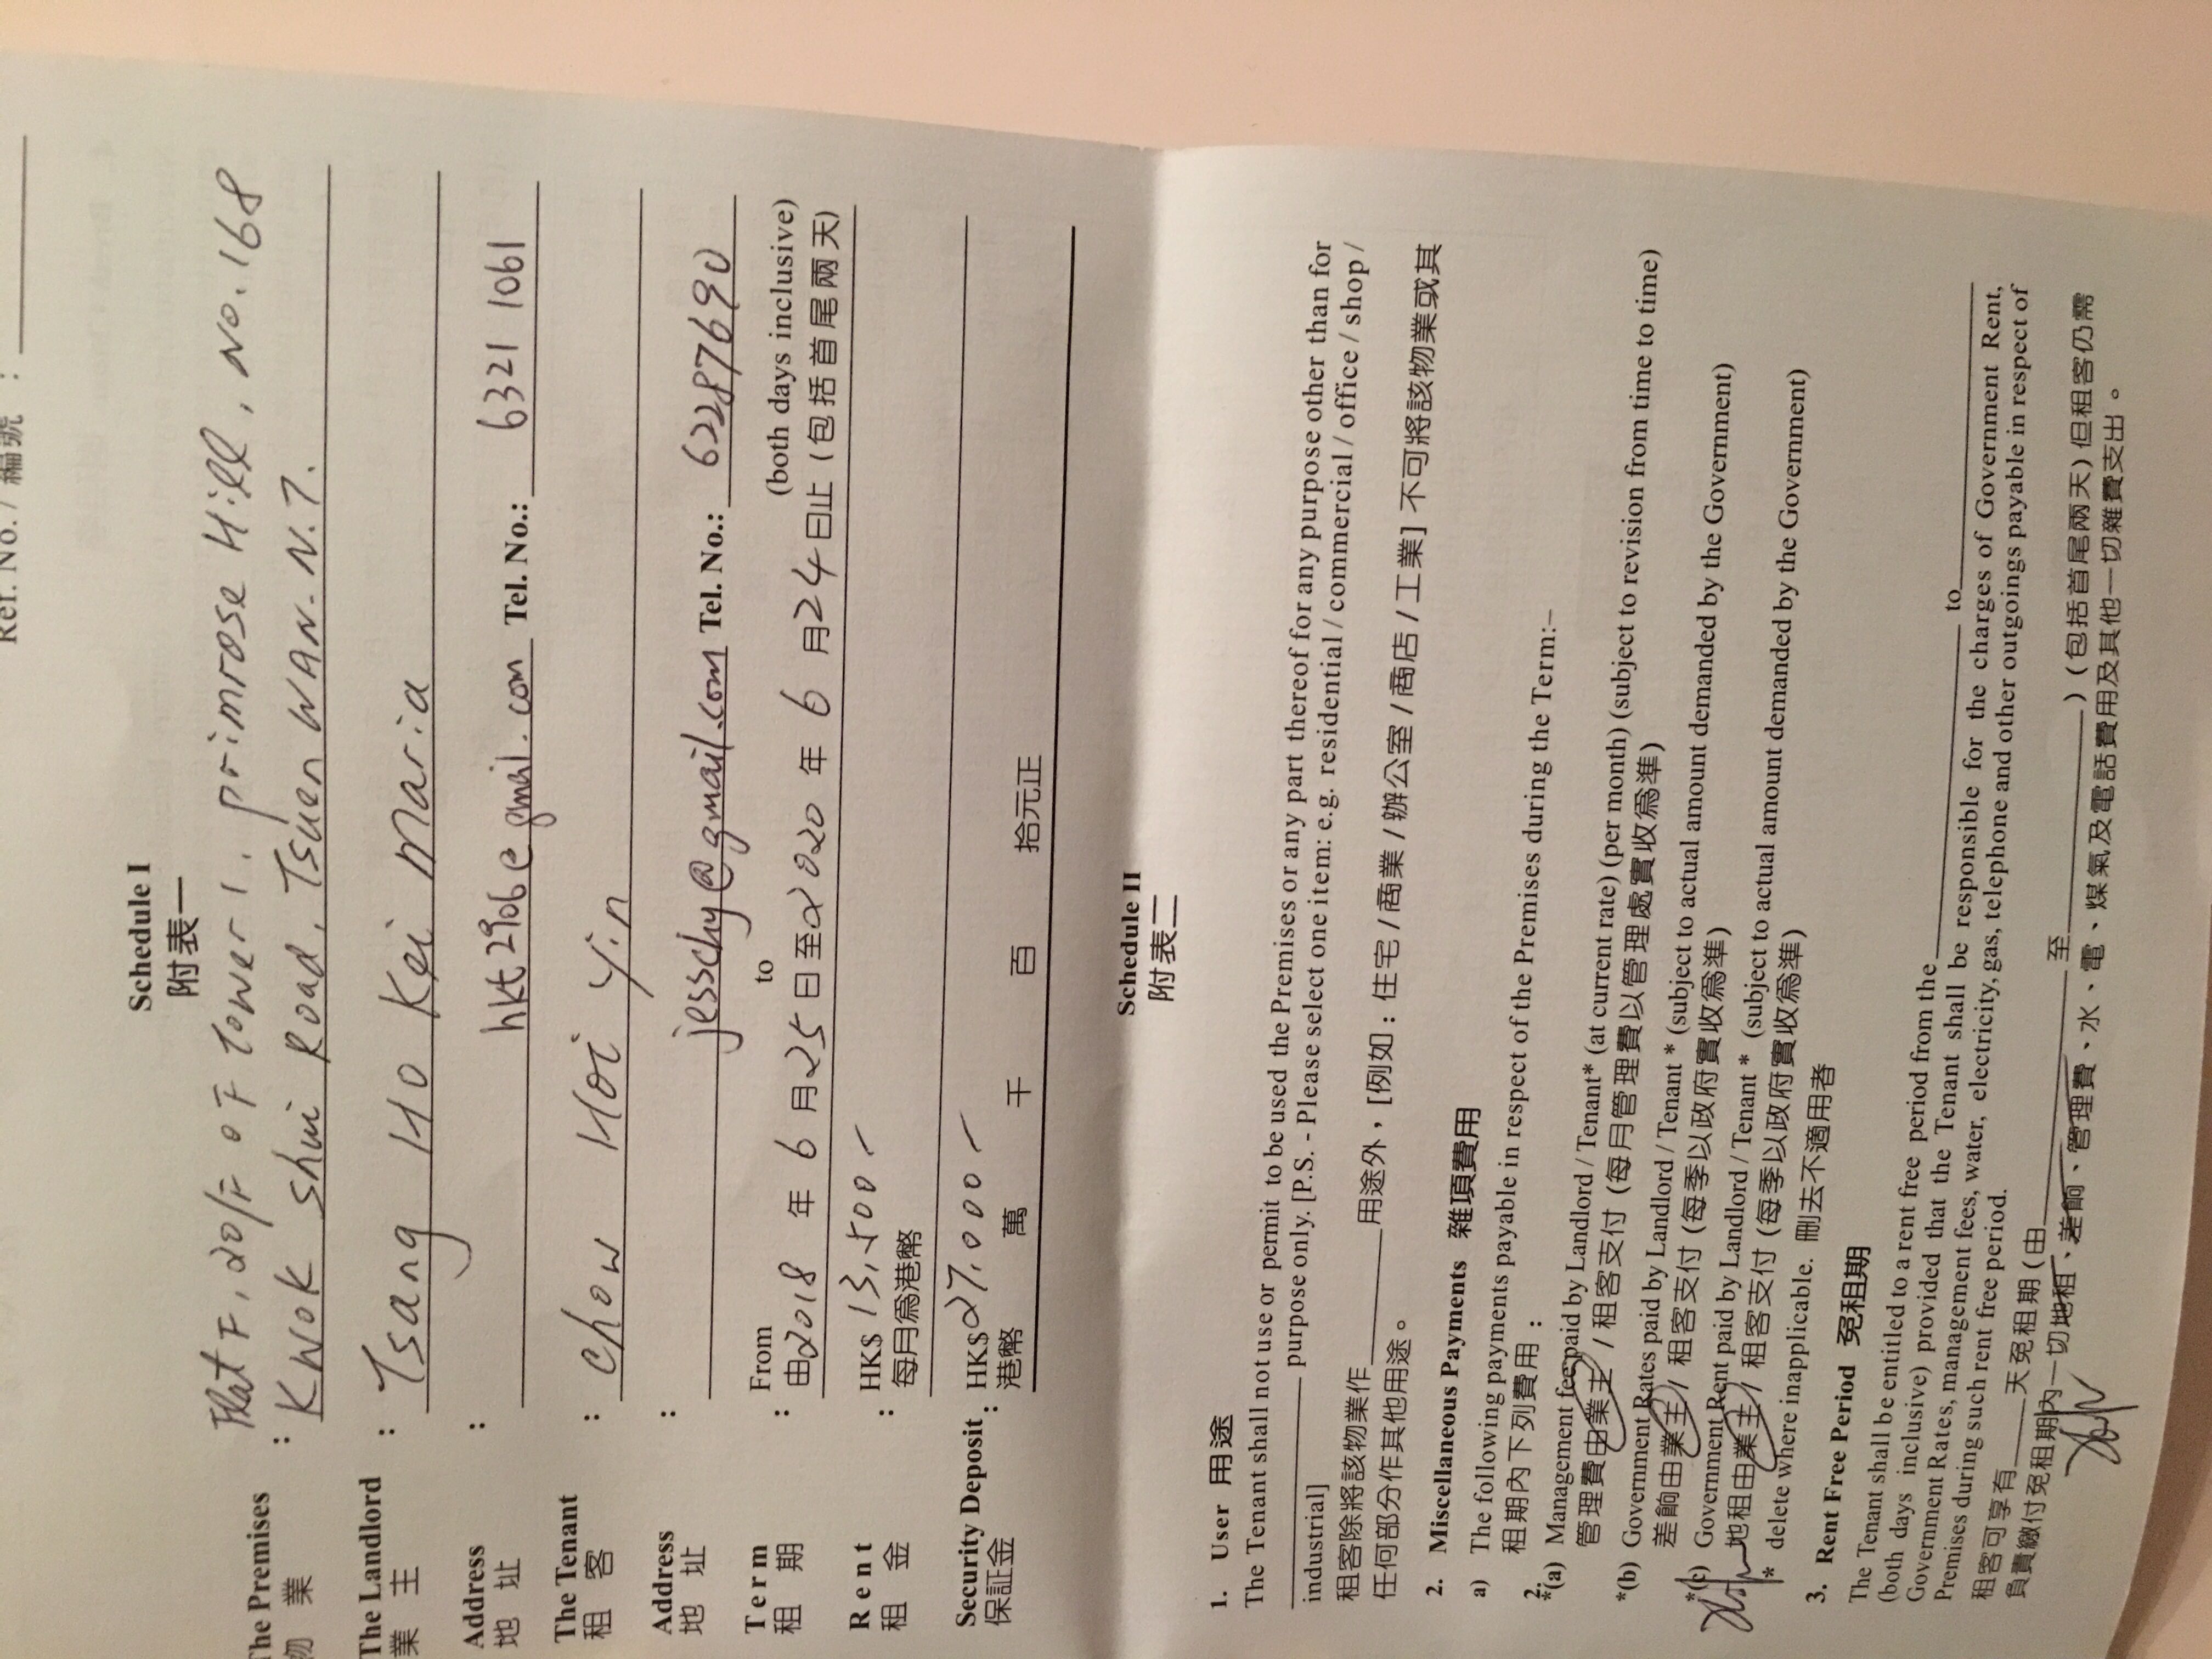 Ref. No. / 編號 :
Schedule I
附表一
The Premises : Flat F, 20/F OF Tower 1, primrose Hill, No.168
物 業 Kwok Shui Road, Tsuen WAN. N.T.
The Landlord : Tsang Ho Kei Maria
業 主
Address : hkt2906@gmail.com Tel. No.: 6321 1061
地 址
The Tenant : Chow Hoi Yin
租 客
Address : jesschy@gmail.com Tel. No.: 62287690
地 址
Term : From to (both days inclusive)
租 期 由2018 年 6 月25日至2020 年 6 月24日止 (包括首尾兩天)
Rent : HK$ 13,500-
租 金 每月為港幣
Security Deposit : HK$27,000-
保証金 港幣 萬 千 百 拾元正
Schedule II
附表二
1. User 用途
The Tenant shall not use or permit to be used the Premises or any part thereof for any purpose other than for
purpose only. [P.S. - Please select one item: e.g. residential / commercial / office / shop /
industrial]
租客除將該物業作 用途外，[例如：住宅 / 商業 / 辦公室 / 商店 / 工業] 不可將該物業或其
任何部分作其他用途。
2. Miscellaneous Payments 雜項費用
a) The following payments payable in respect of the Premises during the Term:–
2. 租期內下列費用：
*(a) Management fees paid by Landlord / Tenant* (at current rate) (per month) (subject to revision from time to time)
管理費由業主 / 租客支付 (每月管理費以管理處實收為準)
*(b) Government Rates paid by Landlord / Tenant * (subject to actual amount demanded by the Government)
差餉由業主 / 租客支付 (每季以政府實收為準)
*(c) Government Rent paid by Landlord / Tenant * (subject to actual amount demanded by the Government)
地租由業主 / 租客支付 (每季以政府實收為準)
* delete where inapplicable. 刪去不適用者
3. Rent Free Period 免租期
The Tenant shall be entitled to a rent free period from the to
(both days inclusive) provided that the Tenant shall be responsible for the charges of Government Rent,
Government Rates, management fees, water, electricity, gas, telephone and other outgoings payable in respect of
Premises during such rent free period.
租客可享有 天免租期 (由 至 ) (包括首尾兩天) 但租客仍需
負責繳付免租期內一切地租、差餉、管理費、水、電、煤氣及電話費用及其他一切雜費支出。